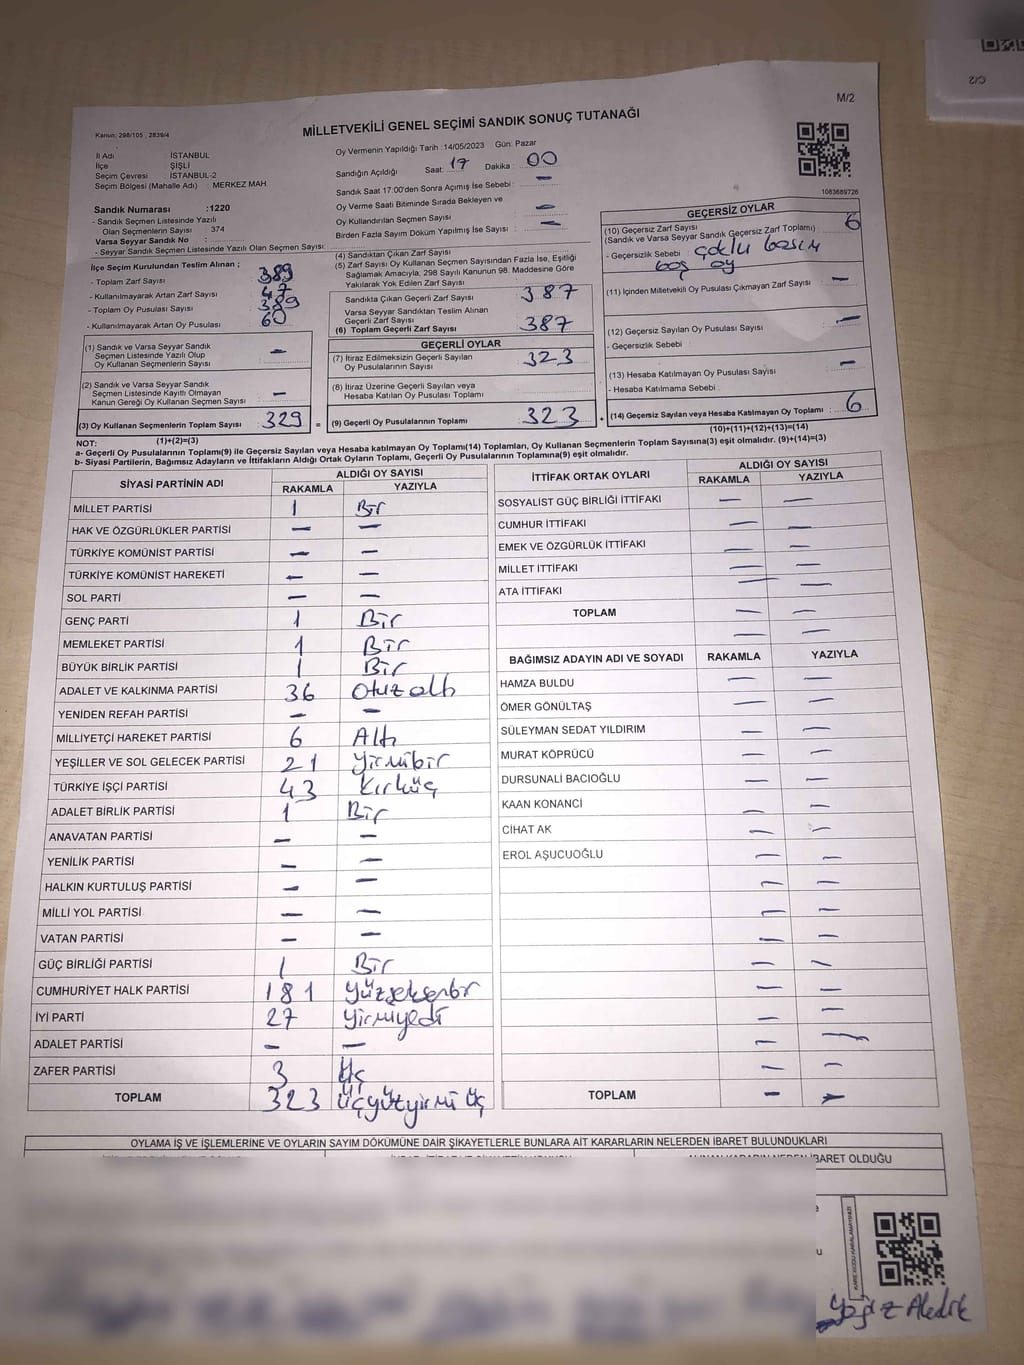 C/2
M/2
Kanun: 298/105 , 2839/4
MİLLETVEKİLİ GENEL SEÇİMİ SANDIK SONUÇ TUTANAĞI
İl Adı : İSTANBUL
İlçe : ŞİŞLİ
Seçim Çevresi : İSTANBUL-2
Seçim Bölgesi (Mahalle Adı) : MERKEZ MAH
Oy Vermenin Yapıldığı Tarih :14/05/2023 Gün: Pazar
Sandığın Açıldığı Saat: 17 Dakika : 00
Sandık Saat 17:00'den Sonra Açımış İse Sebebi : —
Oy Verme Saati Bitiminde Sırada Bekleyen ve
Oy Kullandırılan Seçmen Sayısı —
Birden Fazla Sayım Döküm Yapılmış İse Sayısı : —
1083689726
Sandık Numarası :1220
- Sandık Seçmen Listesinde Yazılı
Olan Seçmenlerin Sayısı : 374
Varsa Seyyar Sandık No :
- Seyyar Sandık Seçmen Listesinde Yazılı Olan Seçmen Sayısı:
İlçe Seçim Kurulundan Teslim Alınan ;
- Toplam Zarf Sayısı : 389
- Kullanılmayarak Artan Zarf Sayısı : 47
- Toplam Oy Pusulası Sayısı : 389
- Kullanılmayarak Artan Oy Pusulası : 60
(1) Sandık ve Varsa Seyyar Sandık
Seçmen Listesinde Yazılı Olup
Oy Kullanan Seçmenlerin Sayısı : —
(2) Sandık ve Varsa Seyyar Sandık
Seçmen Listesinde Kayıtlı Olmayan
Kanun Gereği Oy Kullanan Seçmen Sayısı : —
(3) Oy Kullanan Seçmenlerin Toplam Sayısı : 329
(1)+(2)=(3)
(4) Sandıktan Çıkan Zarf Sayısı :
(5) Zarf Sayısı Oy Kullanan Seçmen Sayısından Fazla İse, Eşitliği
Sağlamak Amacıyla, 298 Sayılı Kanunun 98. Maddesine Göre
Yakılarak Yok Edilen Zarf Sayısı :
Sandıkta Çıkan Geçerli Zarf Sayısı : 387
Varsa Seyyar Sandıktan Teslim Alınan
Geçerli Zarf Sayısı :
(6) Toplam Geçerli Zarf Sayısı : 387
GEÇERLİ OYLAR
(7) İtiraz Edilmeksizin Geçerli Sayılan
Oy Pusulalarının Sayısı : 323
(8) İtiraz Üzerine Geçerli Sayılan veya
Hesaba Katılan Oy Pusulası Toplamı :
= (9) Geçerli Oy Pusulalarının Toplamı : 323 +
GEÇERSİZ OYLAR
(10) Geçersiz Zarf Sayısı : 6
(Sandık ve Varsa Seyyar Sandık Geçersiz Zarf Toplamı)
- Geçersizlik Sebebi : çoklu basım
boş oy
(11) İçinden Milletvekili Oy Pusulası Çıkmayan Zarf Sayısı : —
(12) Geçersiz Sayılan Oy Pusulası Sayısı : —
- Geçersizlik Sebebi :
(13) Hesaba Katılmayan Oy Pusulası Sayısı : —
- Hesaba Katılmama Sebebi :
(14) Geçersiz Sayılan veya Hesaba Katılmayan Oy Toplamı : 6
(10)+(11)+(12)+(13)=(14)
NOT:
a- Geçerli Oy Pusulalarının Toplamı(9) ile Geçersiz Sayılan veya Hesaba katılmayan Oy Toplamı(14) Toplamları, Oy Kullanan Seçmenlerin Toplam Sayısına(3) eşit olmalıdır. (9)+(14)=(3)
b- Siyasi Partilerin, Bağımsız Adayların ve İttifakların Aldığı Ortak Oyların Toplamı, Geçerli Oy Pusulalarının Toplamına(9) eşit olmalıdır.
SİYASİ PARTİNİN ADI ALDIĞI OY SAYISI
RAKAMLA YAZIYLA
MİLLET PARTİSİ 1 Bir
HAK VE ÖZGÜRLÜKLER PARTİSİ — —
TÜRKİYE KOMÜNİST PARTİSİ — —
TÜRKİYE KOMÜNİST HAREKETİ — —
SOL PARTİ — —
GENÇ PARTİ 1 Bir
MEMLEKET PARTİSİ 1 Bir
BÜYÜK BİRLİK PARTİSİ 1 Bir
ADALET VE KALKINMA PARTİSİ 36 Otuzaltı
YENİDEN REFAH PARTİSİ — —
MİLLİYETÇİ HAREKET PARTİSİ 6 Altı
YEŞİLLER VE SOL GELECEK PARTİSİ 21 Yirmibir
TÜRKİYE İŞÇİ PARTİSİ 43 Kırküç
ADALET BİRLİK PARTİSİ 1 Bir
ANAVATAN PARTİSİ — —
YENİLİK PARTİSİ — —
HALKIN KURTULUŞ PARTİSİ — —
MİLLİ YOL PARTİSİ — —
VATAN PARTİSİ — —
GÜÇ BİRLİĞİ PARTİSİ 1 Bir
CUMHURİYET HALK PARTİSİ 181 Yüzseksenbir
İYİ PARTİ 27 Yirmiyedi
ADALET PARTİSİ — —
ZAFER PARTİSİ 3 Üç
TOPLAM 323 üçyüzyirmi üç
İTTİFAK ORTAK OYLARI ALDIĞI OY SAYISI
RAKAMLA YAZIYLA
SOSYALİST GÜÇ BİRLİĞİ İTTİFAKI — —
CUMHUR İTTİFAKI — —
EMEK VE ÖZGÜRLÜK İTTİFAKI — —
MİLLET İTTİFAKI — —
ATA İTTİFAKI — —
TOPLAM — —
— —
BAĞIMSIZ ADAYIN ADI VE SOYADI RAKAMLA YAZIYLA
HAMZA BULDU — —
ÖMER GÖNÜLTAŞ — —
SÜLEYMAN SEDAT YILDIRIM — —
MURAT KÖPRÜCÜ — —
DURSUNALİ BACIOĞLU — —
KAAN KONANCİ — —
CİHAT AK — —
EROL AŞUCUOĞLU — —
TOPLAM — —
OYLAMA İŞ VE İŞLEMLERİNE VE OYLARIN SAYIM DÖKÜMÜNE DAİR ŞİKAYETLERLE BUNLARA AİT KARARLARIN NELERDEN İBARET BULUNDUKLARI
ALINAN KARARIN NEDEN İBARET OLDUĞU
KARE KODU KARALAMAYINIZ!